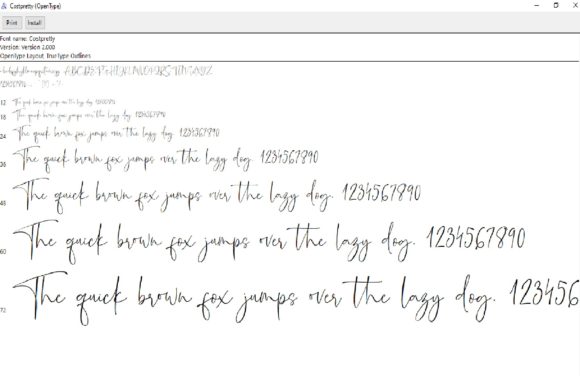 Costpretty (OpenType)
Print Install
Font name: Costpretty
Version: Version 2.000
OpenType Layout, TrueType Outlines
ABCDEFGHIJKLMNOPQRSTUVWXYZ
1234567890
12 The quick brown fox jumps over the lazy dog. 1234567890
18 The quick brown fox jumps over the lazy dog. 1234567890
24 The quick brown fox jumps over the lazy dog. 1234567890
36 The quick brown fox jumps over the lazy dog. 1234567890
48 The quick brown fox jumps over the lazy dog. 1234567890
60 The quick brown fox jumps over the lazy dog. 1234567890
72 The quick brown fox jumps over the lazy dog. 123456